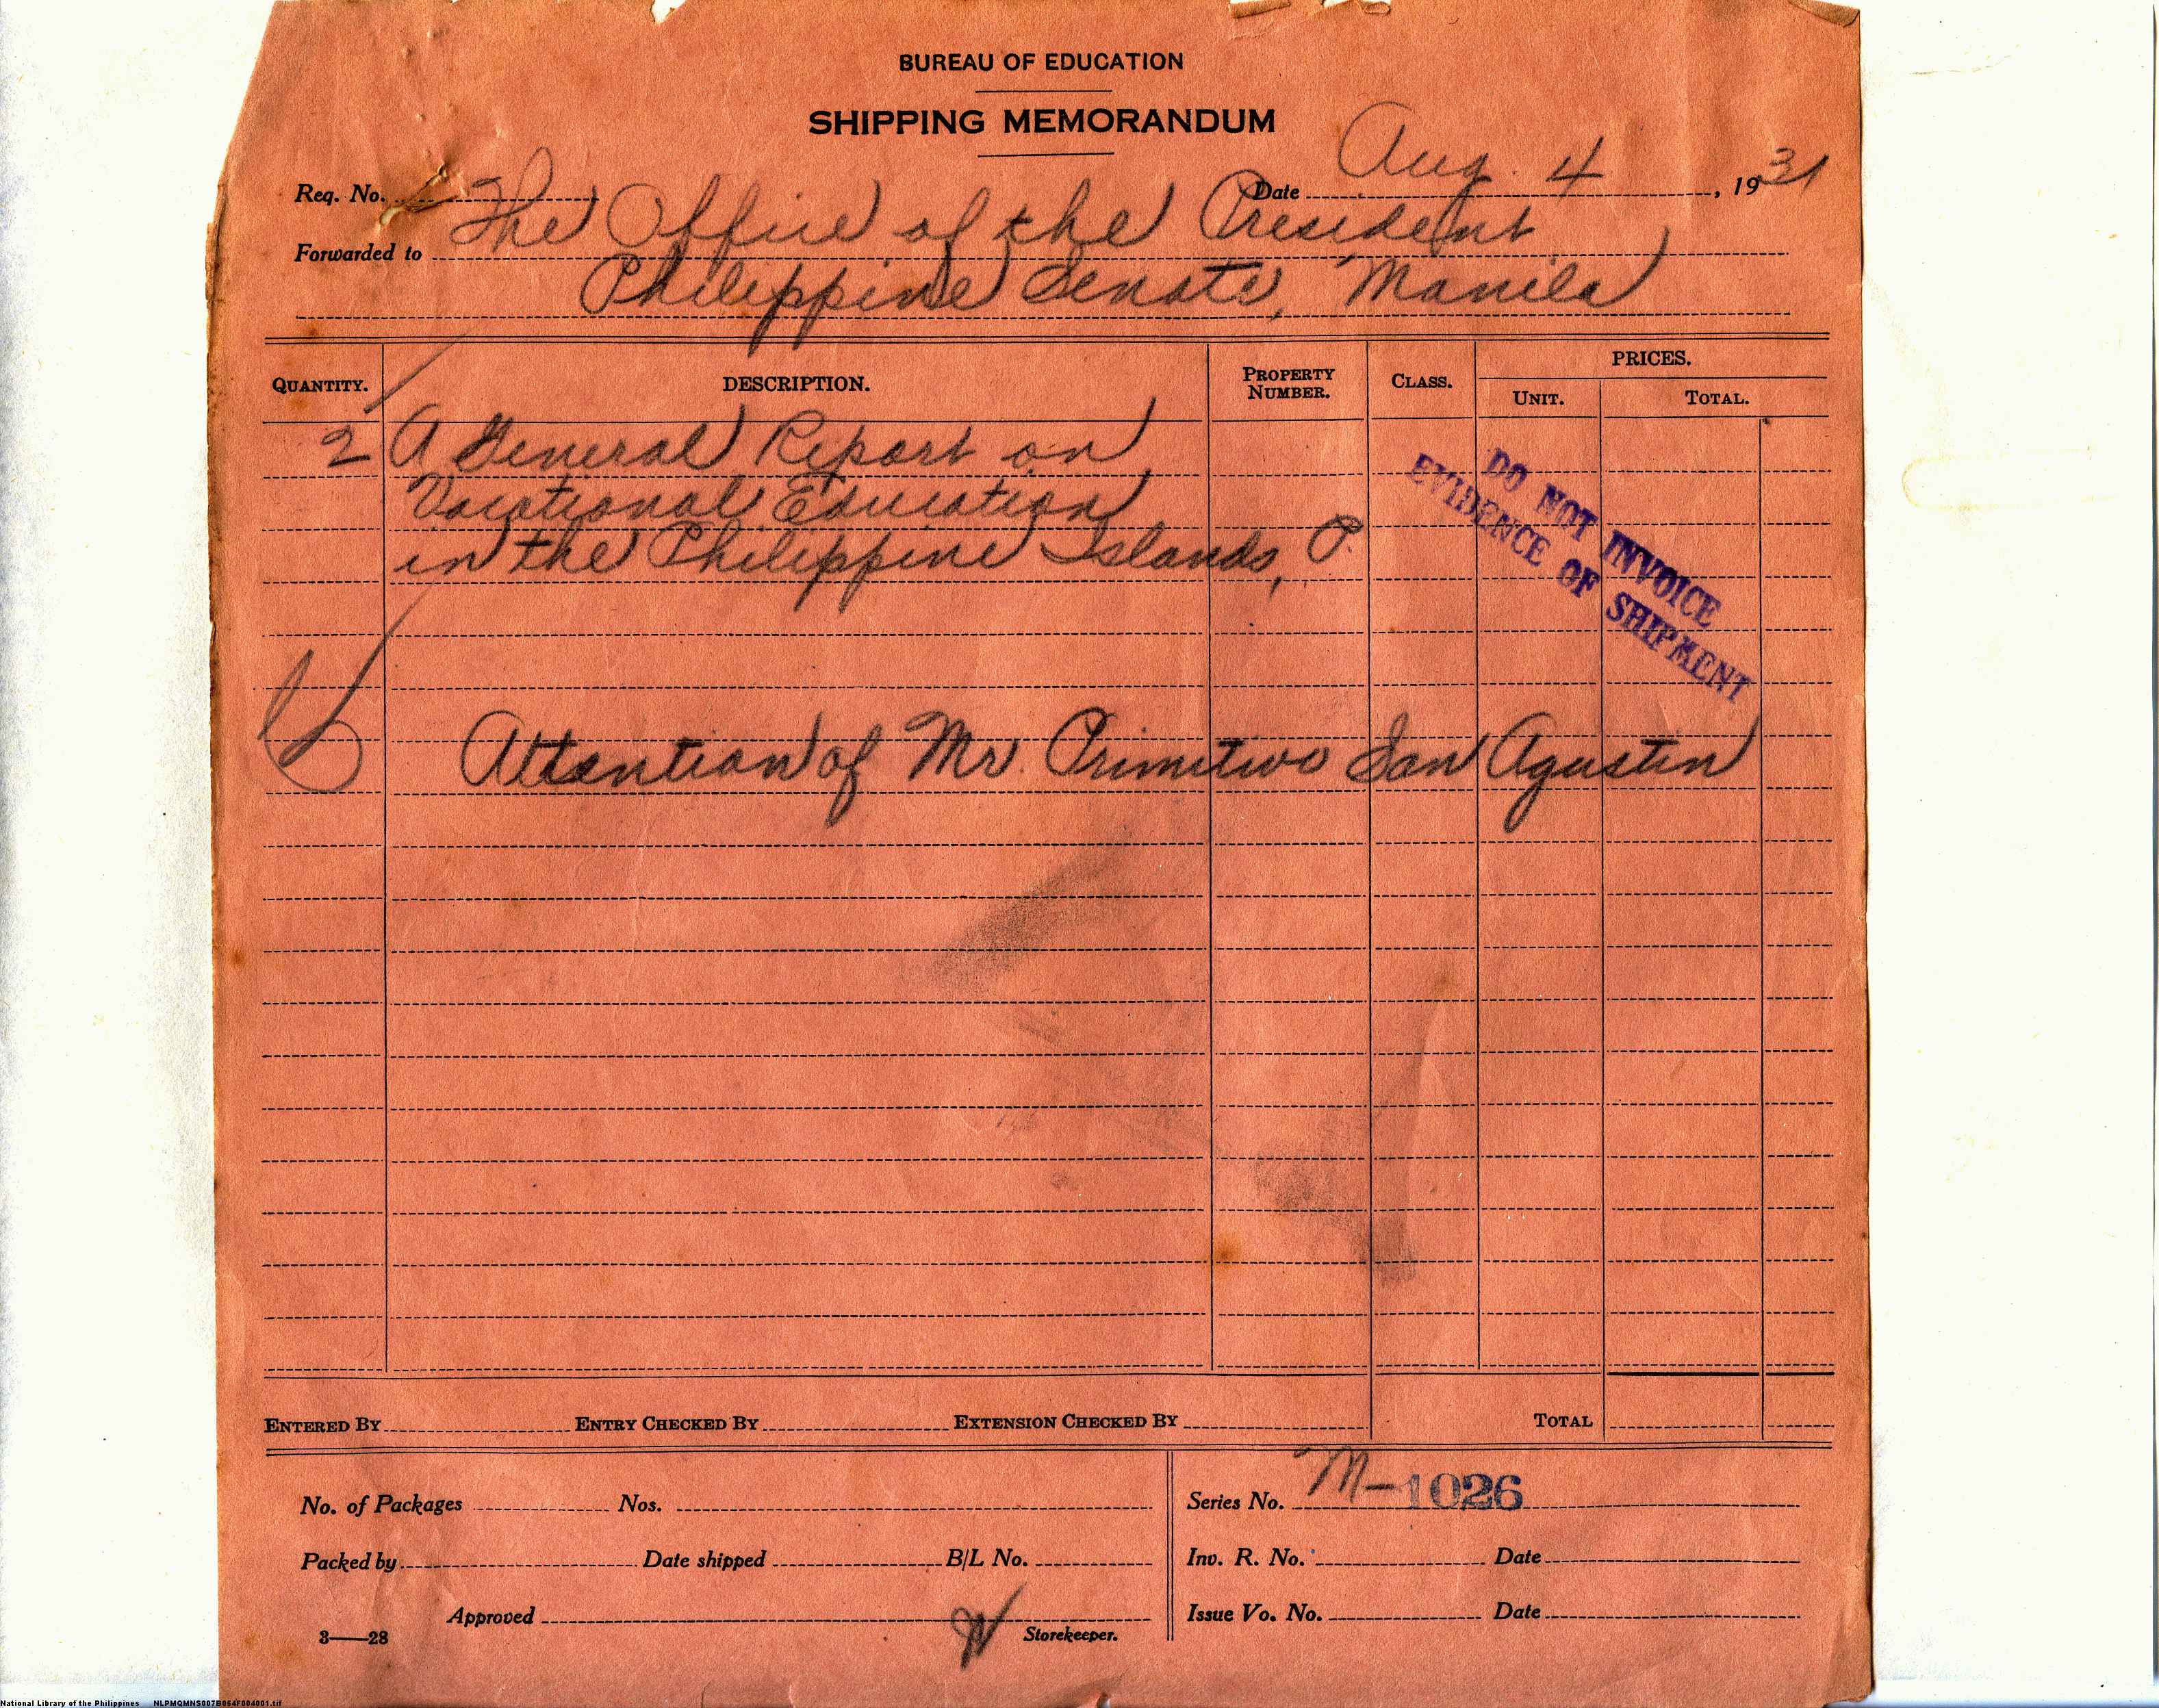 BUREAU OF EDUCATION
SHIPPING MEMORANDUM
Req. No. Date Aug. 4, 1931
Forwarded to The Office of the President
Philippine Senate, Manila
QUANTITY. DESCRIPTION. PROPERTY NUMBER. CLASS. PRICES. UNIT. TOTAL.
2 A General Report on
Vocational Education
in the Philippine Islands, P.
DO NOT INVOICE
EVIDENCE OF SHIPMENT
Attention of Mr. Primitivo San Agustin
ENTERED BY ENTRY CHECKED BY EXTENSION CHECKED BY TOTAL
No. of Packages Nos. Series No. M-1026
Packed by Date shipped B/L No. Inv. R. No. Date
Approved Issue Vo. No. Date
3—28 Storekeeper.
National Library of the Philippines NLPMQMNS007B054F004001.tif